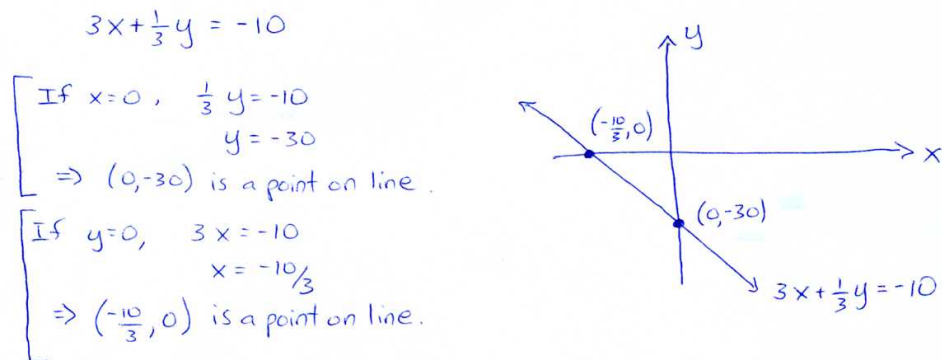 3x+⅓y = -10
If x=0, ⅓ y=-10
y = -30
⇒ (0,-30) is a point on line.
If y=0, 3x=-10
x = -10/3
⇒ (-10/3, 0) is a point on line.
y
(-10/3, 0)
x
(0,-30)
3x+⅓y=-10